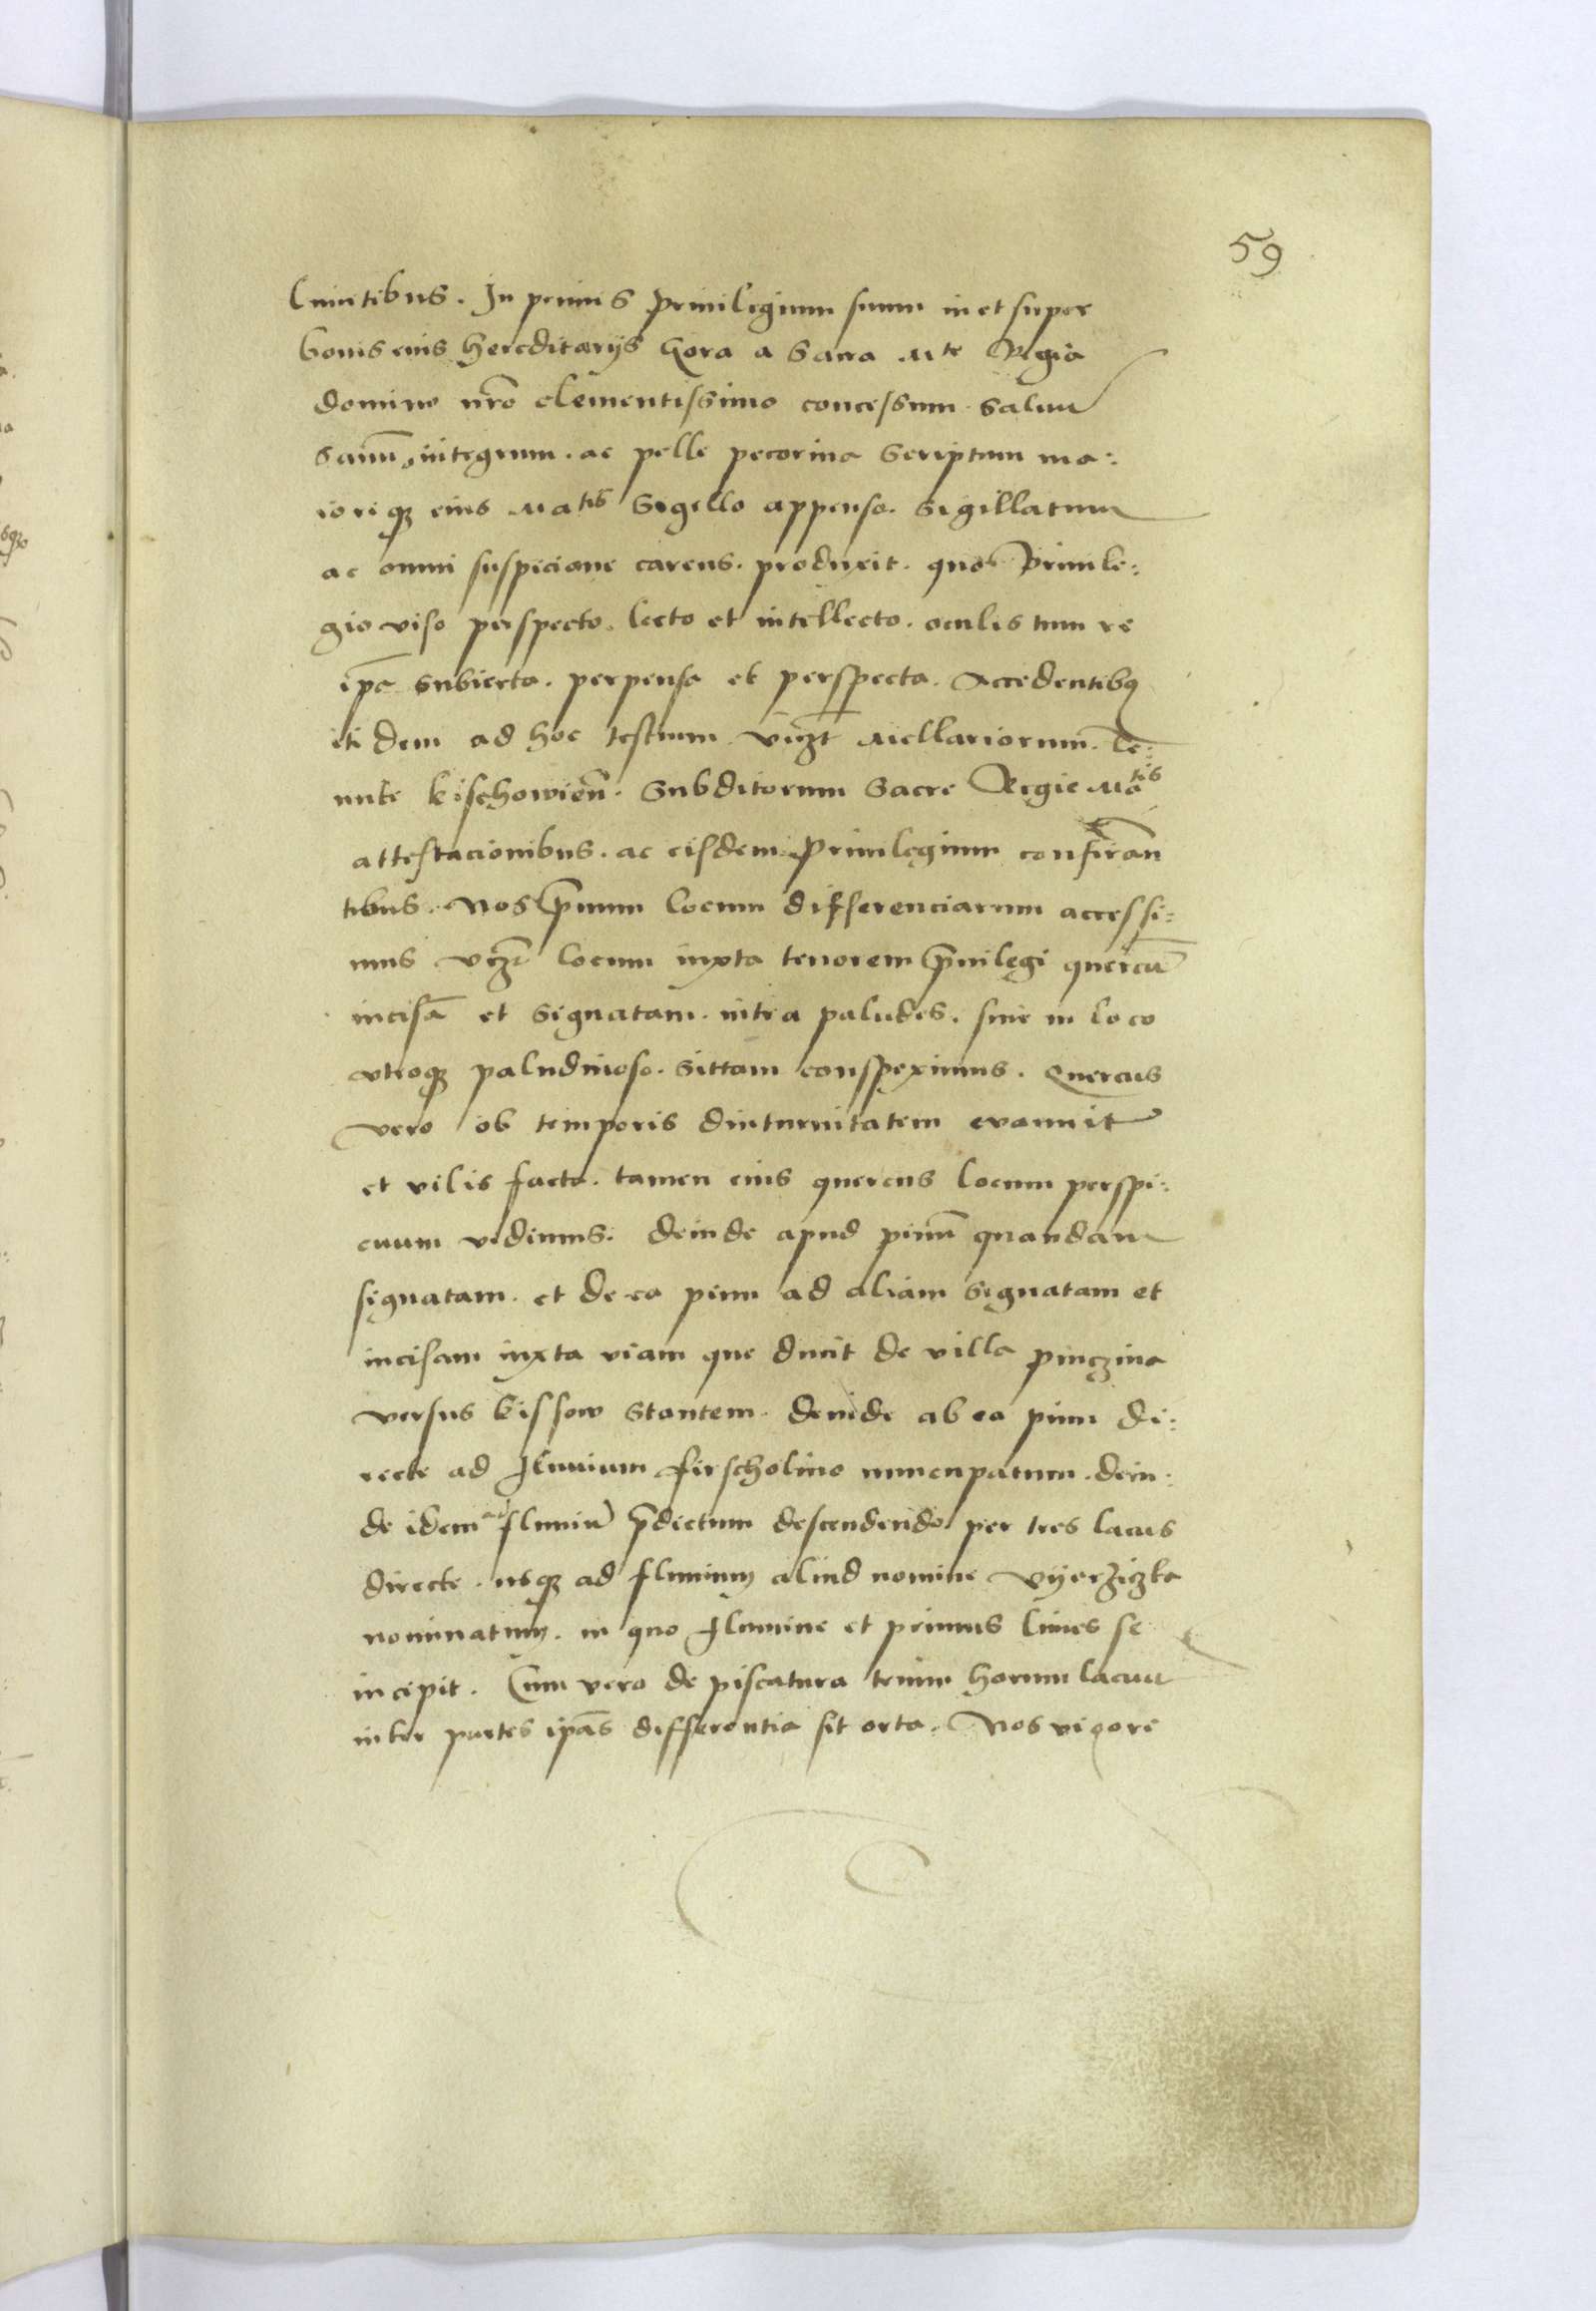 59
Limitibus. In primis Privilegium suum in et super
bonis eius hereditarys Gora a Sacra Mte Regia
domino nro clementissimo concessum saluu
sanu, integrum. ac pelle pecorina scriptum ma:
iorique eius Matis Sigello appenso. Sigillatum
ac omni suspicione carens. produxit. quo Priuile:
gio viso perspecto. lecto et intellecto. oculis tum re
ipa subiecta. perpensa et perspecta. Accedentibus
itidem ad hoc testium vizt Mellariorum. Te:
nute kischowien. Subditorum Sacre Regie Matis
attestacionibus. ac eisdem Priuilegium confirman
tibus. Nos primum locum differenciarum accessi:
mus vizt locum iuxta tenorem priuilegi quercu
incisa et signatam. intra paludes. siue in loco
vtroque paludinoso. sittam conspeximus. Quercus
vero ob temporis diuturnitatem evanuit
et vilis facta. tamen eius quercus locum perspi:
cuum vidimus. deinde apud pinu quandam
signatam. et de ea pinu ad aliam signatam et
incisam iuxta viam que ducit de villa pinczina
versus kissow stantem. deinde ab ea pinu di:
recte ad fluuium firscholino nuncupatum. dein:
de idem ad fluuiu pdictum descendendo per tres lacus
directe. usque ad fluuium aliud nomine vyerzizka
nominatum. in quo flumine et primus limes se
incipit. Cum vero de piscatura trium horum lacuu
inter partes ipas differentia sit orta. Nos vigore